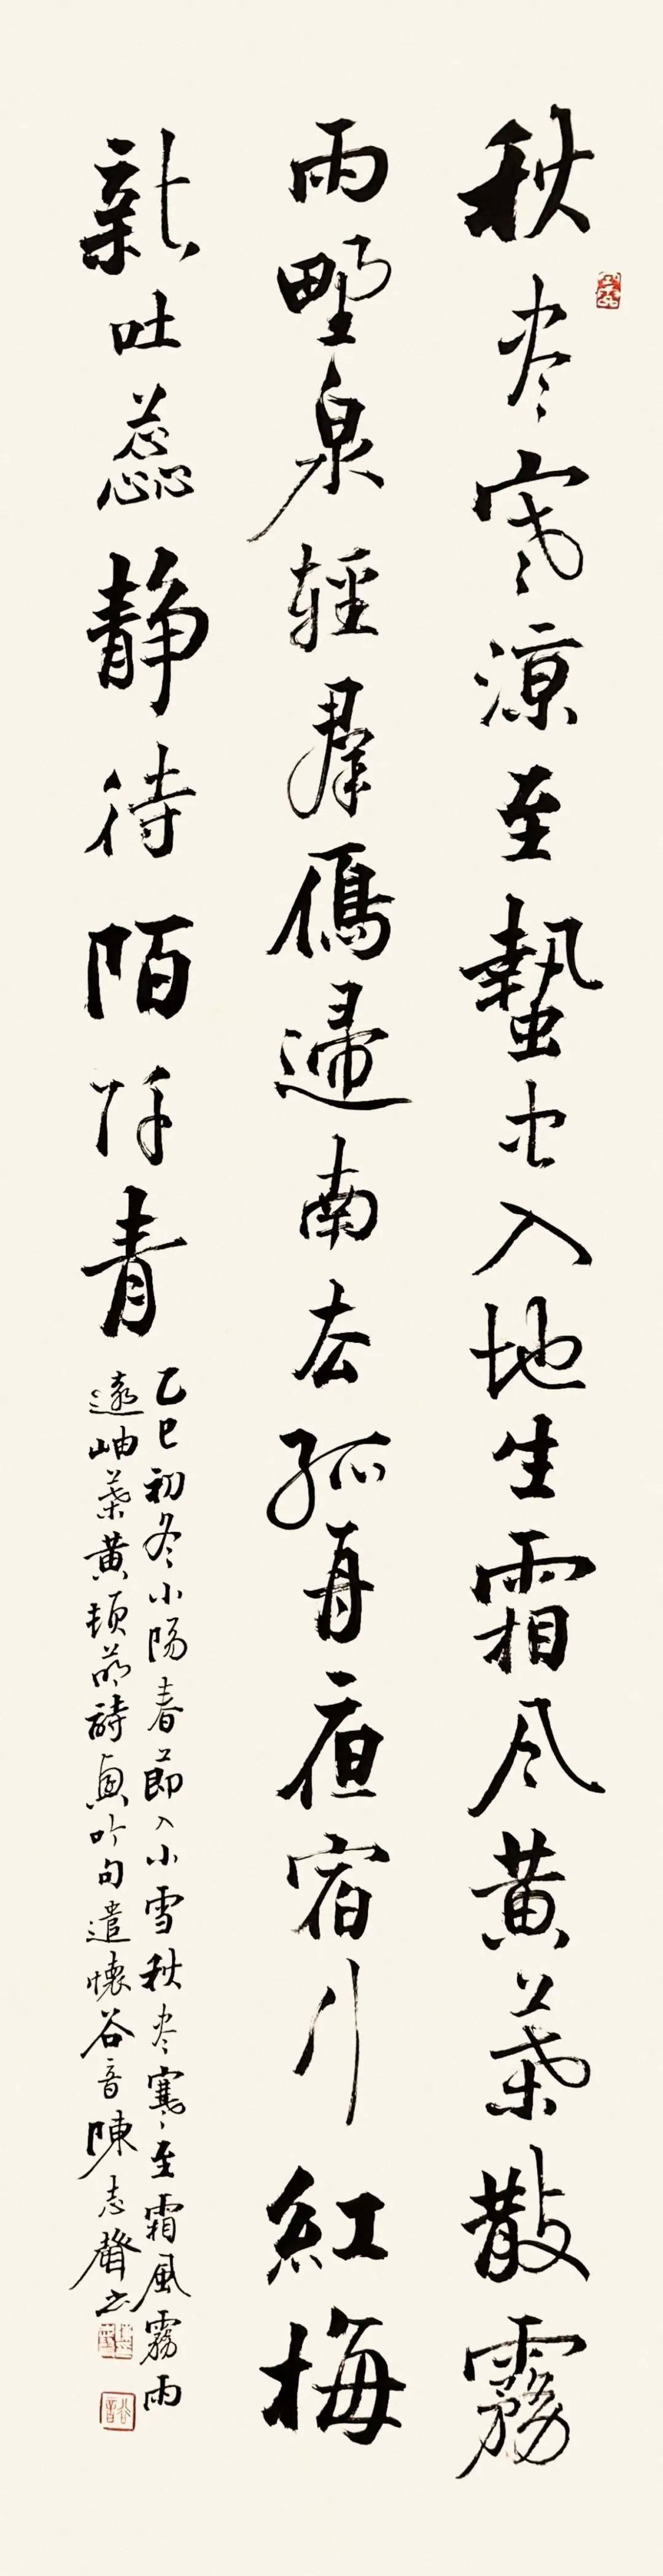 秋尽寒凉至蛰虫入地生霜风黄叶散雾
雨野泉轻群雁归南去孤舟夜宿行红梅
新吐蕊静待陌阡青
乙巳初冬小阳春节入小雪秋尽寒至霜风雾雨
远岫叶黄顿萌诗兴吟句遣怀谷音陈志声书